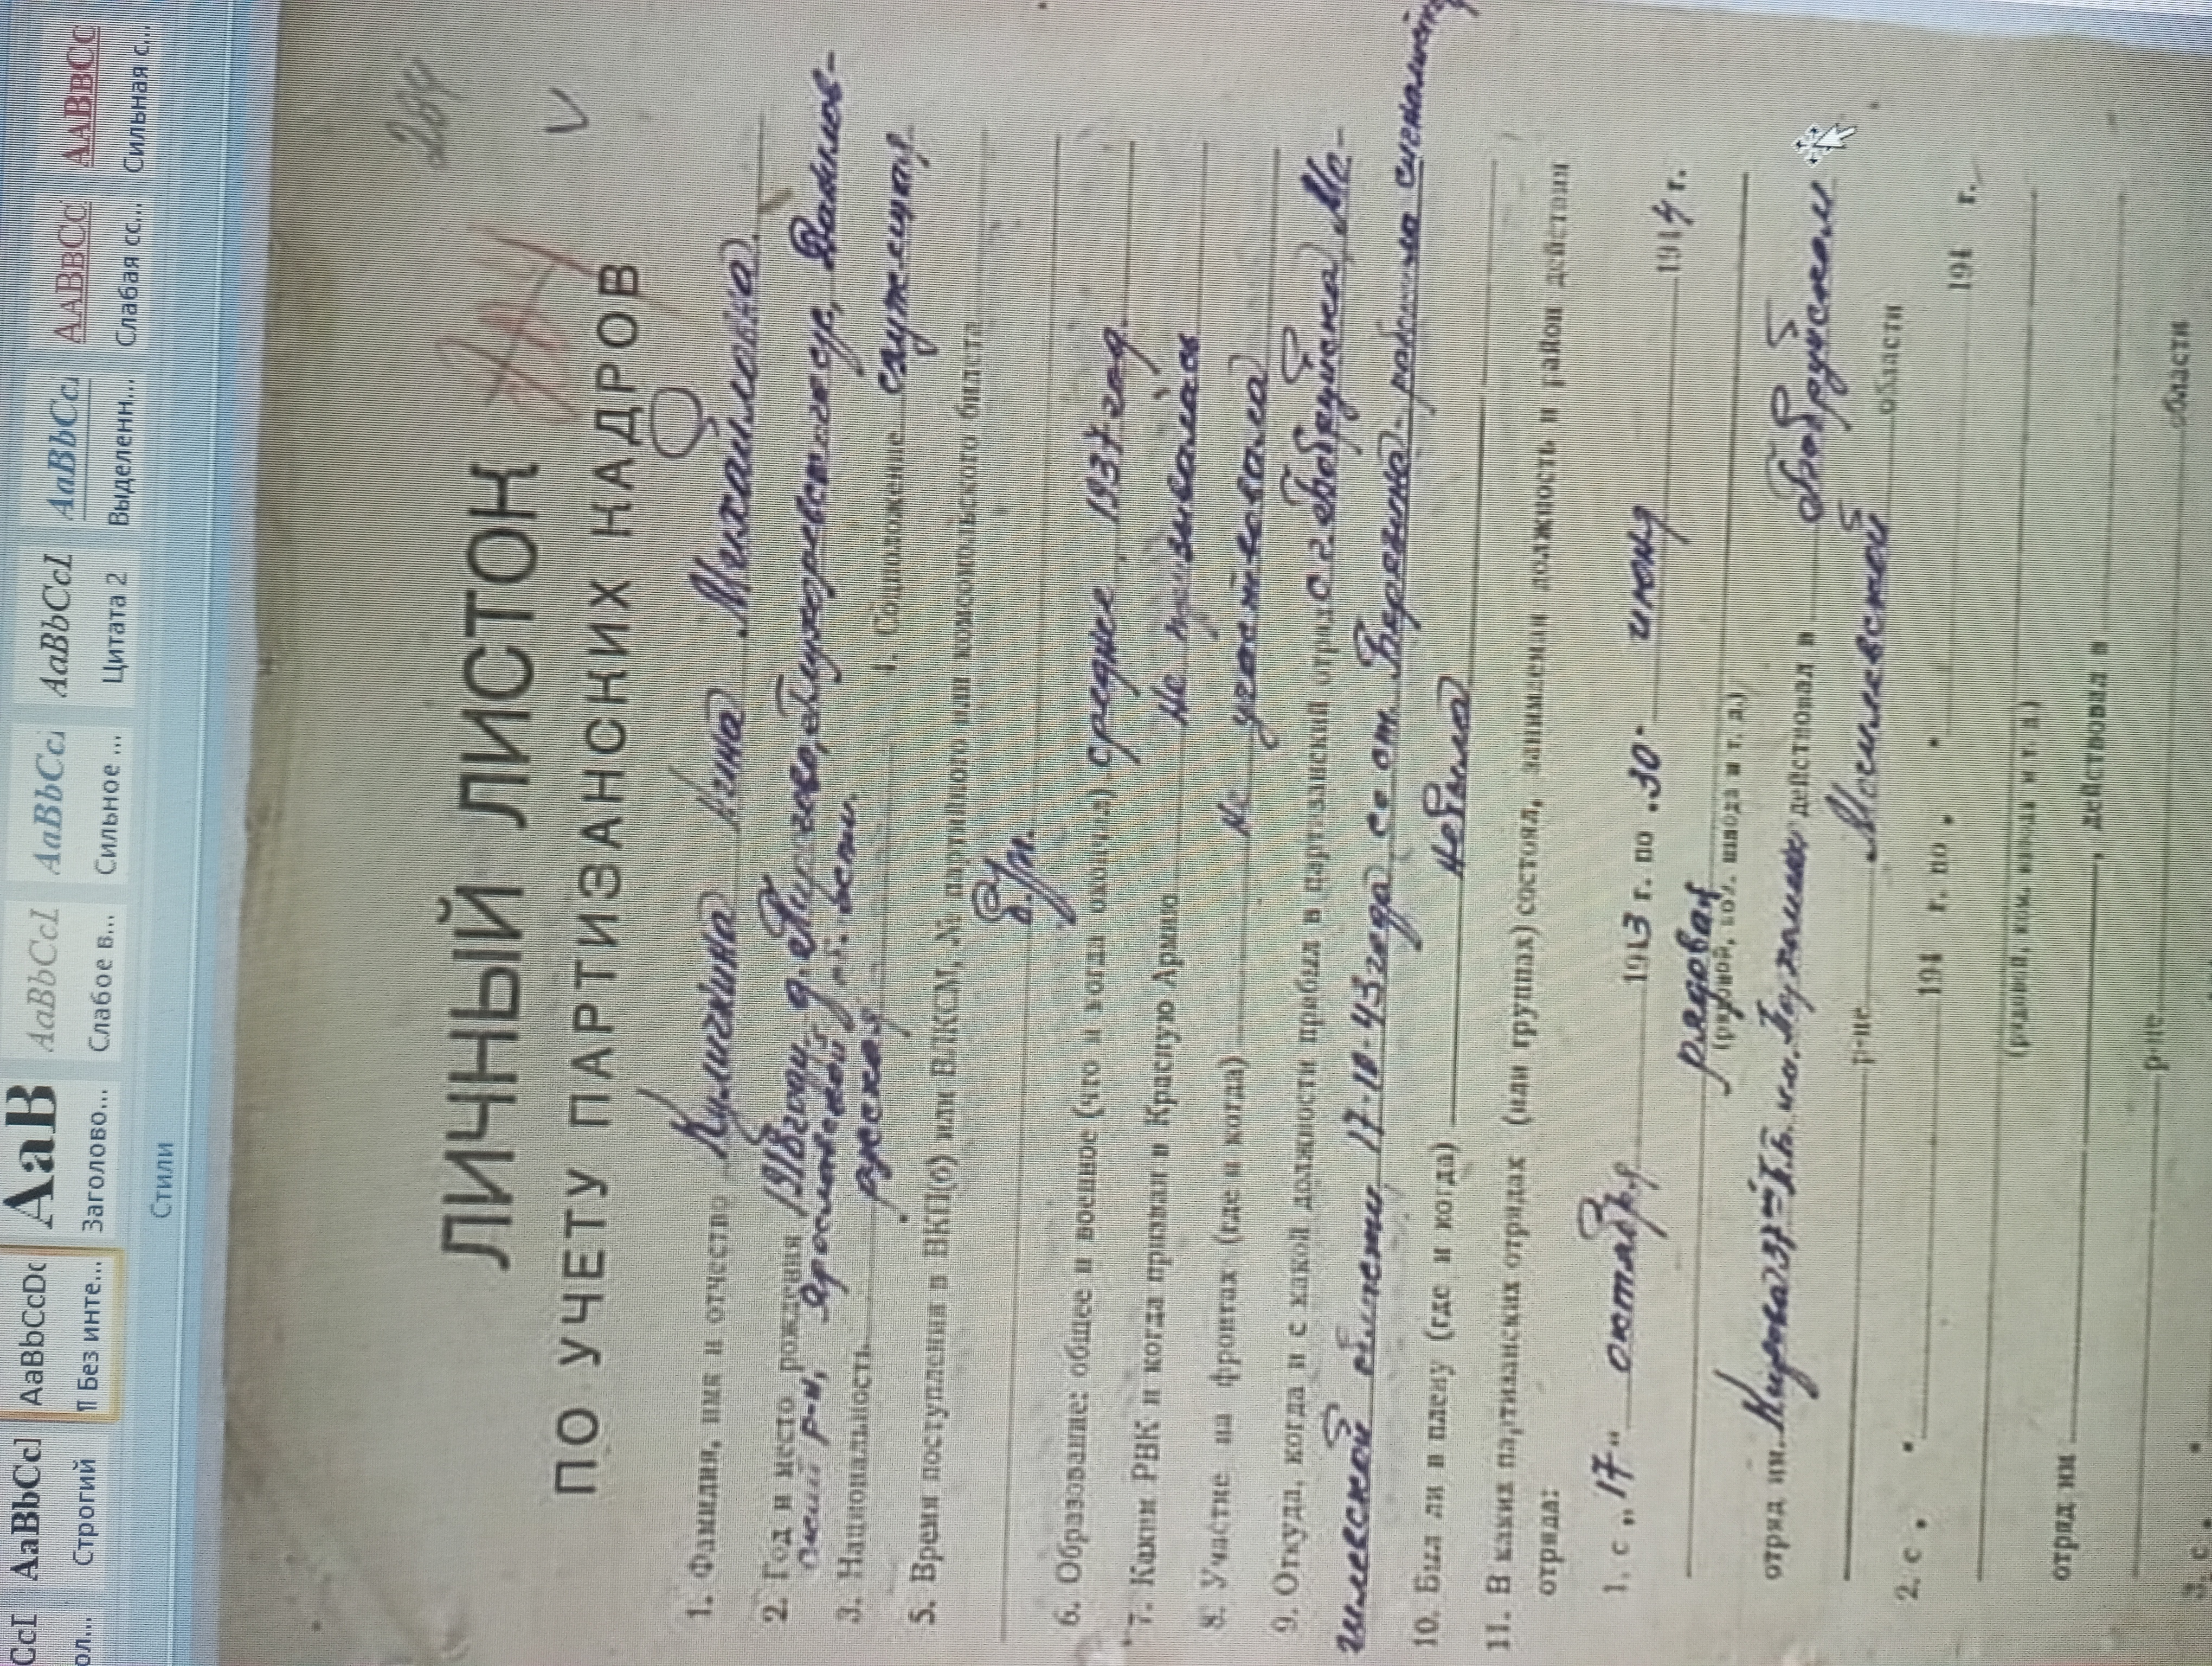 CcI AaBbCcI AaBbCcDc AaB AaBbCcI AaBbCci AaBbCcI AaBbCci AABBCC AABBCC
ол... Строгий ¶ Без инте... Заголово... Слабое в... Сильное ... Цитата 2 Выделенн... Слабая сс... Сильная с...
Стили
264
ЛИЧНЫЙ ЛИСТОК
ПО УЧЕТУ ПАРТИЗАНСКИХ КАДРОВ
1. Фамилия, имя и отчество Кулигкина Нина Михайловна.
2. Год и место рождения 1918 году, д.
ский р-н, Ярославской области.
3. Национальность русская 4. Соцположение служащая
5. Время поступления в ВКП(б) или ВЛКСМ, № партийного или комсомольского билета
б/п.
6. Образование: общее и военное (что и когда окончил) среднее, 1937 год.
7. Каким РВК и когда призван в Красную Армию Не призывалась
8. Участие на фронтах (где и когда) Не участвовала
9. Откуда, когда и с какой должности прибыл в партизанский отряд с г. Бобруйска, Мо-
гилевской области 17-10-43 года со ст. Березина - работала
10. Был ли в плену (где и когда) Не была
11. В каких партизанских отрядах (или группах) состоял, занимаемая должность и район действия
отряда:
1. с „17" октября 1943 г. по „30" июня 1944 г.
рядовая
(рядовой, ком. взвода и т. д.)
отряд им. Кирова 37 п.б. им. Пархоменко действовал в Бобруйском
р-не Могилевской области
2. с „ " 194 г. по „ " 194 г.
(рядовой, ком. взвода и т. д.)
отряд им , действовал в
р-не области
3. с